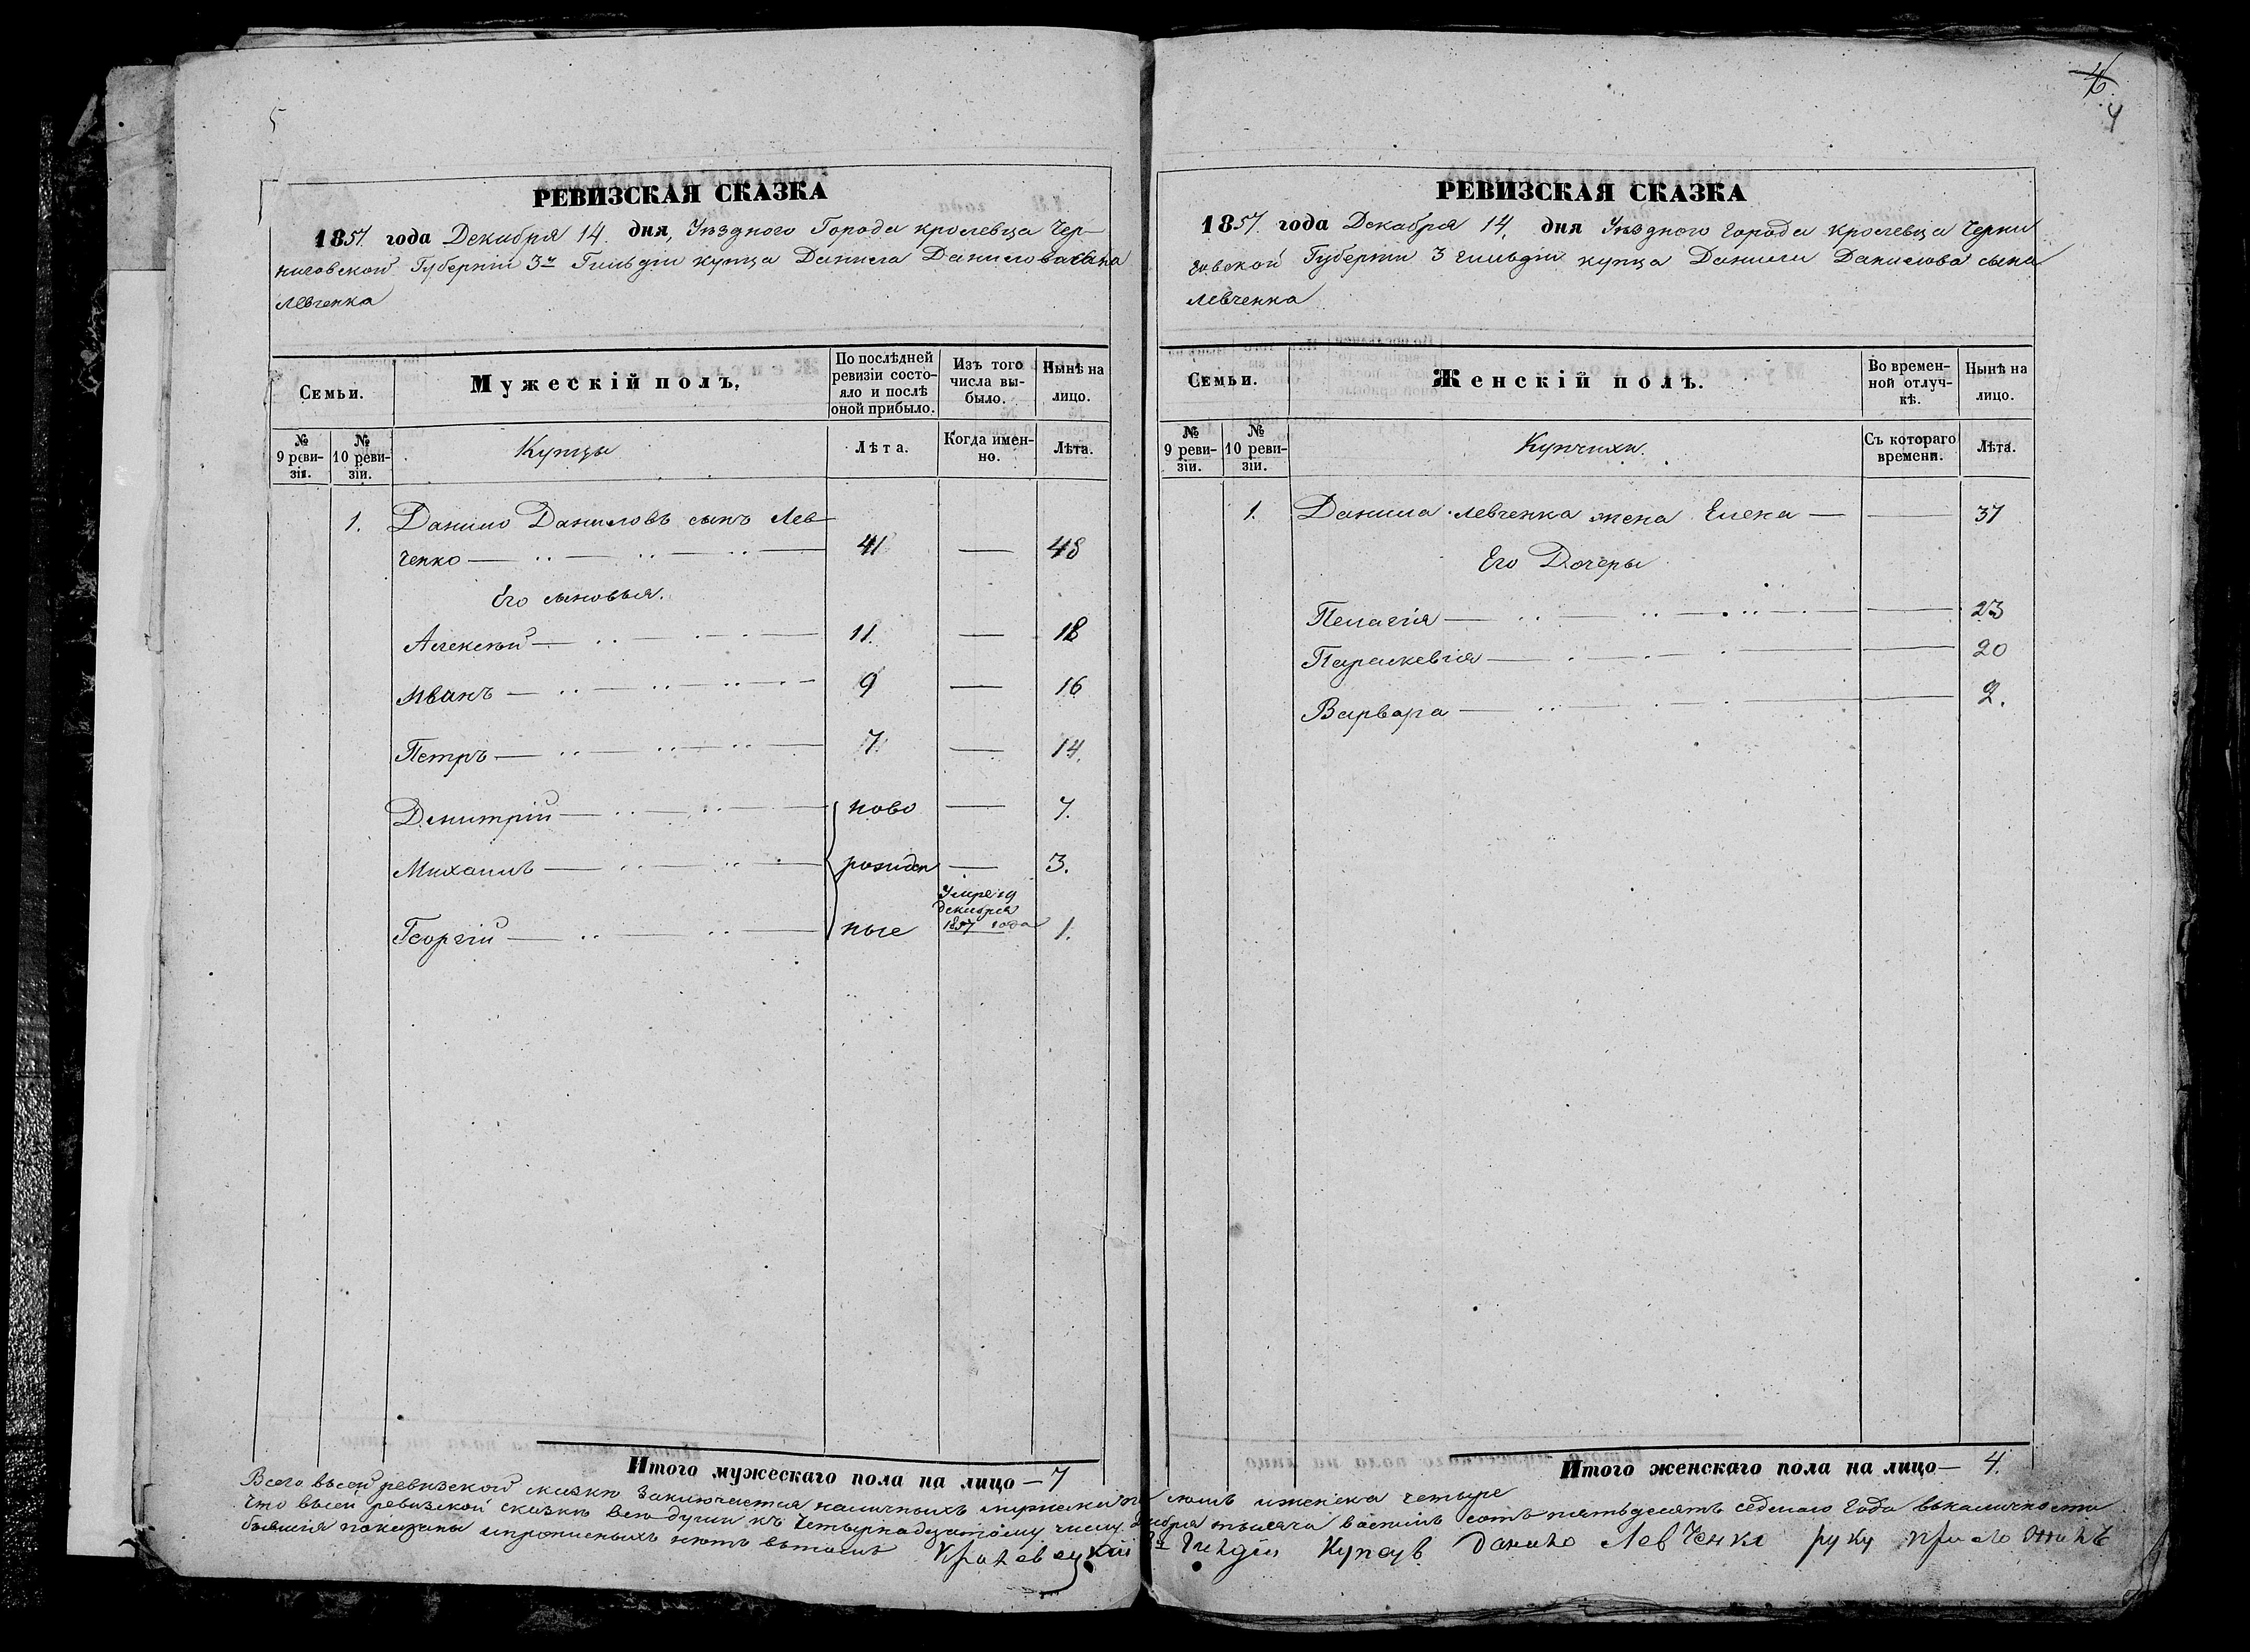 5
РЕВИЗСКАЯ СКАЗКА
1857. года Декабря 14. дня, Уѣзднаго Города Кролевца Чер-
ниговской Губерніи 3й Гильдіи купца Данила Данилова сына
Левченка
Семьи.
Мужескій полъ,
По послѣдней ревизіи состо-яло и послѣ оной прибыло.
Изъ того числа вы-было.
Нынѣ на лицо.
№ 9 реви-зіи.
№ 10 реви-зіи.
Купцы
Лѣта.
Когда имен-но.
Лѣта.
1. Данило Даниловъ сынъ Лев
ченко — 41 — 48
Его сыновья.
Алексѣй — 11. — 18
Иванъ — 9 — 16
Петръ — 7 — 14.
Дмитрій — ново — 7.
Михаилъ — рожден — 3.
Умре 19
декабря
Георгій — ные 1857 года 1.
Итого мужескаго пола на лицо — 7
4
РЕВИЗСКАЯ СКАЗКА
1857. года Декабря 14. дня Уѣзднаго города Кролевца Черни
говской Губерніи 3 гильдіи купца Данилы Данилова сына
Левченка
Семьи.
Женскій полъ.
Во времен-ной отлуч-кѣ.
Нынѣ на лицо.
№ 9 реви-зіи.
№ 10 реви-зіи.
Купчихи.
Съ котораго времени.
Лѣта.
1. Данила Левченка жена Елена — — 37
Его Дочеры
Пелагія — — 23
Параскевія — — 20
Варвара — — 2.
Итого женскаго пола на лицо — 4.
Всего въ сей ревизской сказкѣ заключается наличныхъ мужеска семь и женска четыре
Что въ сей ревизской сказкѣ все души къ четырнадцатому числу декабря тысяча восемь сотъ пятьдесятъ седмаго года въ наличности
бывшія показаны и прописныхъ нѣтъ въ томъ Кролевецкій 3й Гилдіи Купецъ Данило Левченко руку приложилъ